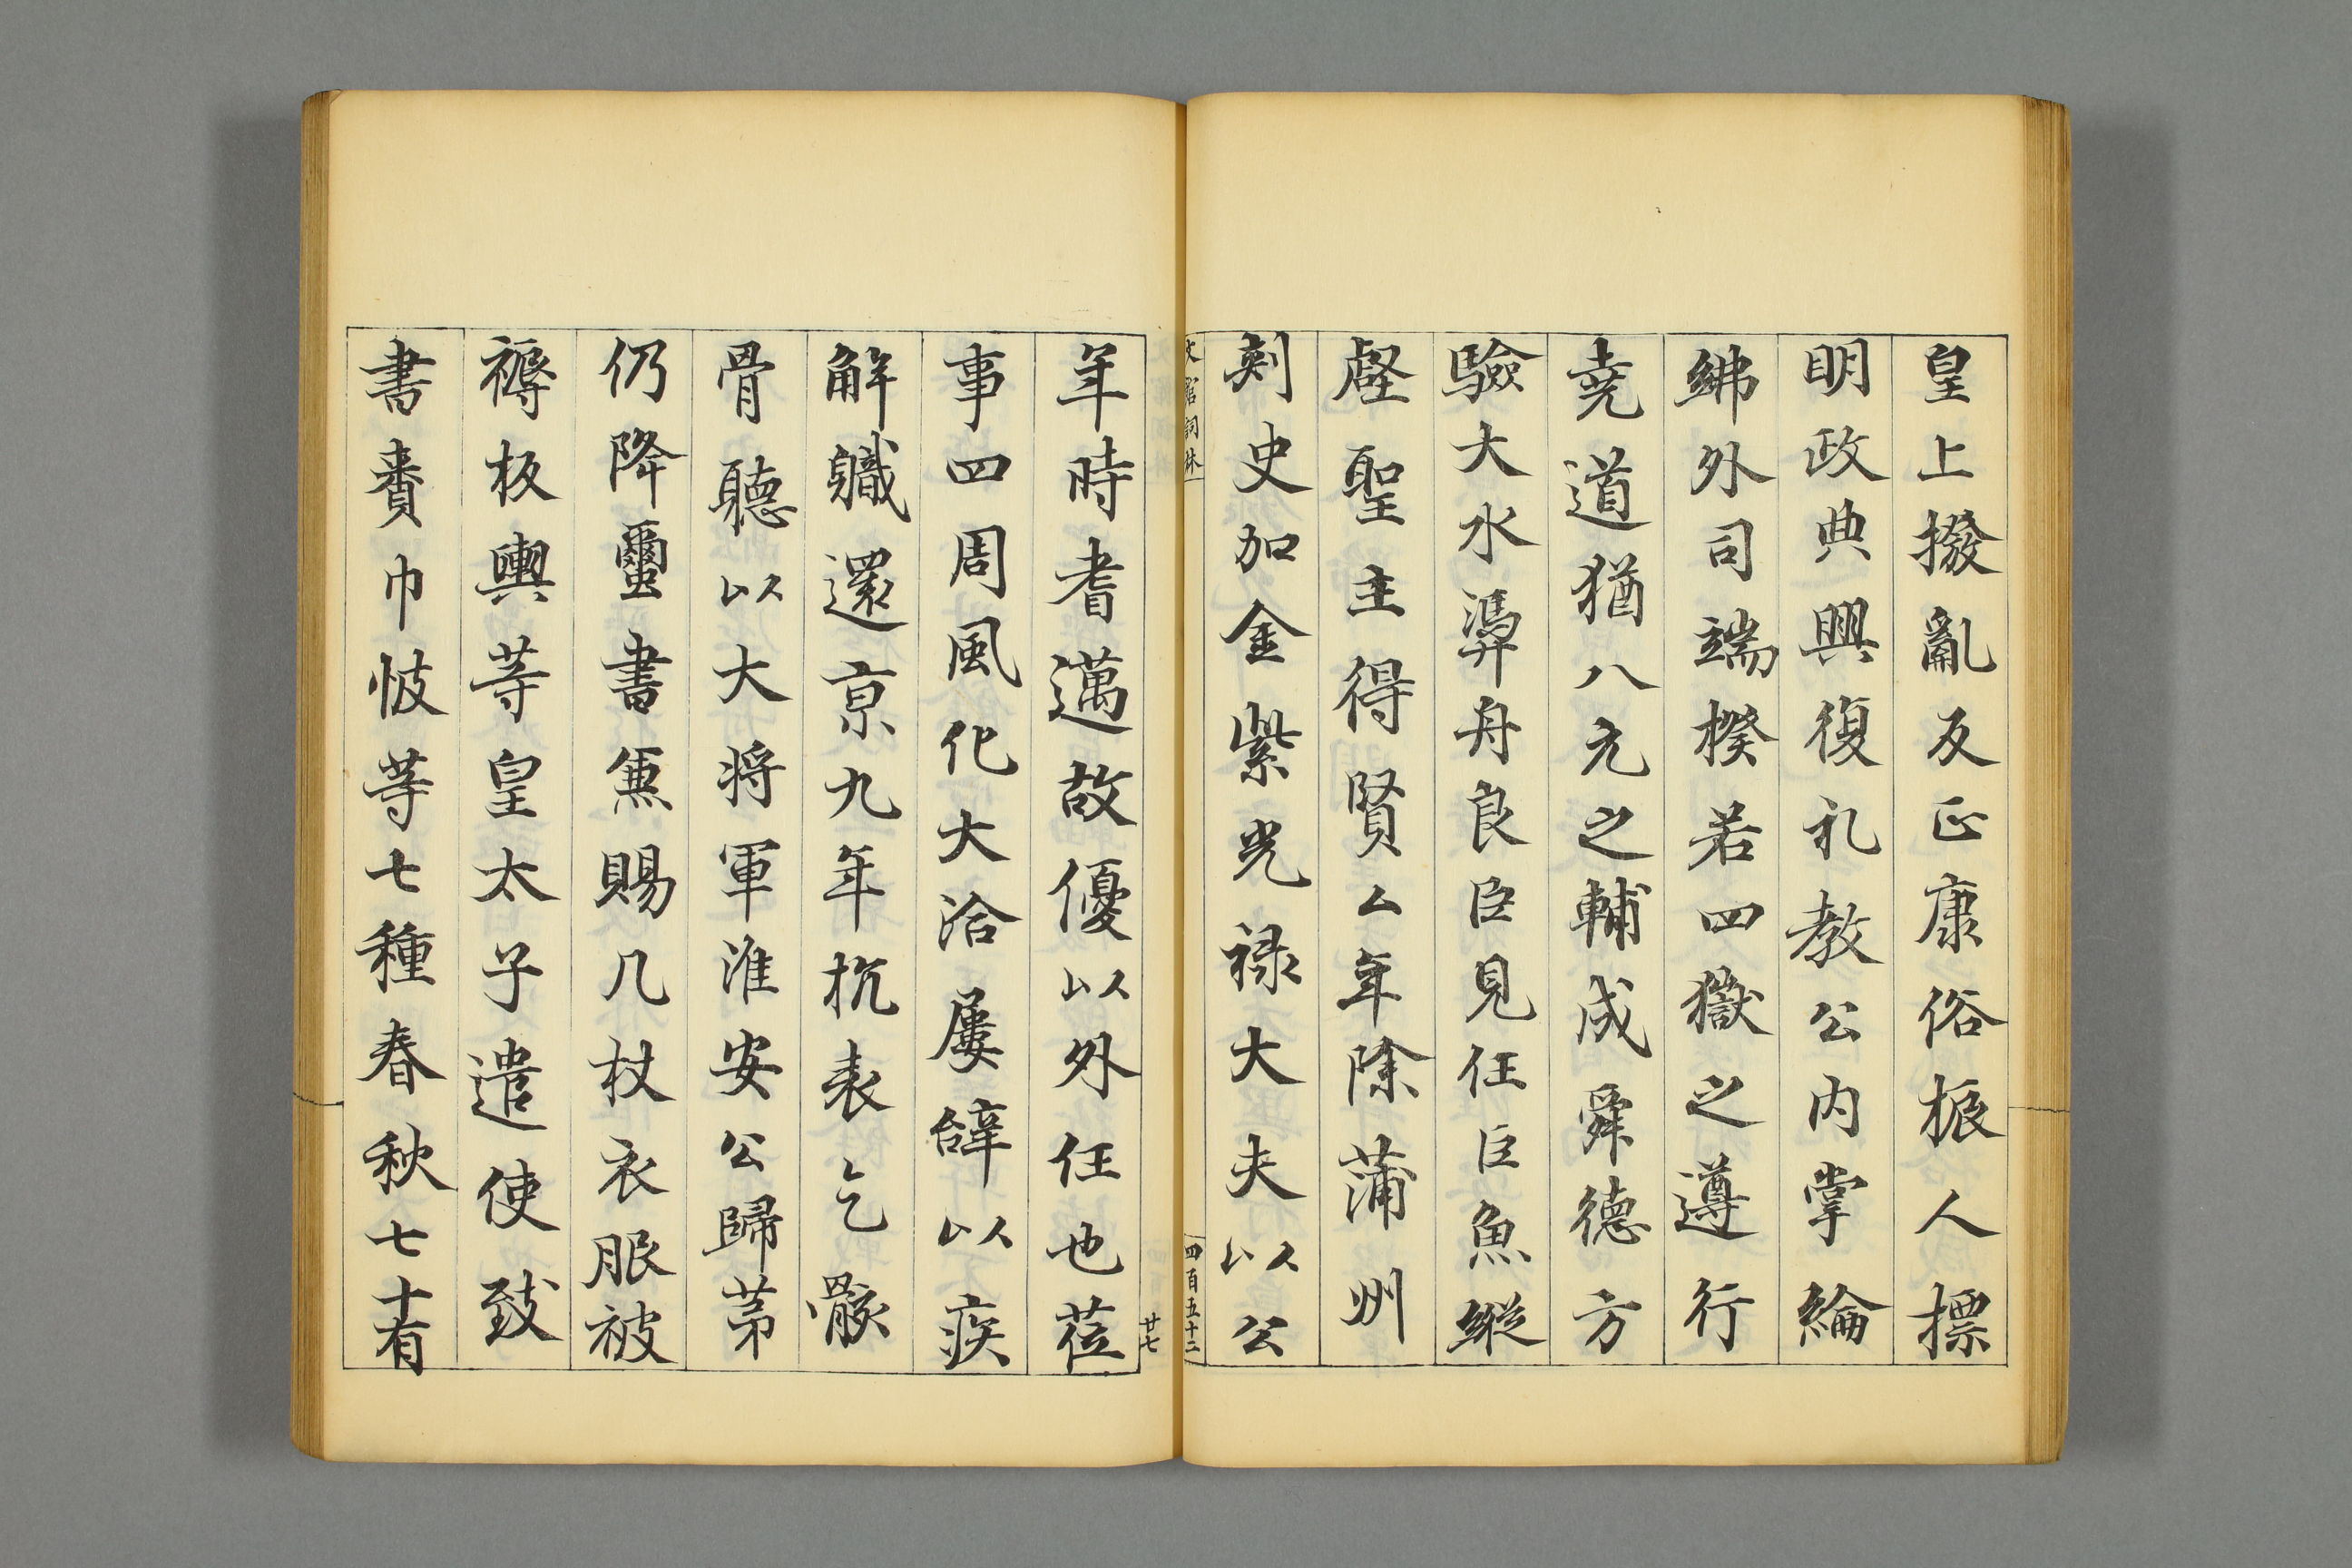 皇上撥亂反正康俗振人摽
明政典興復礼教公内掌綸
紼外司端揆若四嶽之遵行
堯道猶八元之輔成舜德方
驗大水濞舟良臣見任巨魚縱
壑聖主得賢厶年除蒲州
刾史加金紫光禄大夫以公
文館詞林
四百五十二
廿七
年時耆邁故優以外任也莅
事四周風化大洽屢辝以疾
解軄還京九年抗表乞骸
骨聽以大将軍淮安公歸苐
仍降璽書兼賜几杖衣服被
褥板輿等皇太子遣使致
書賚巾帔等七種春秋七十有